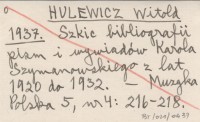 HULEWICZ Witold
1937. Szkic bibliografii
pism i wywiadów Karola
Szymanowskiego z lat
1920 do 1932. — Muzyka
Polska 5, nr 4: 216-218.